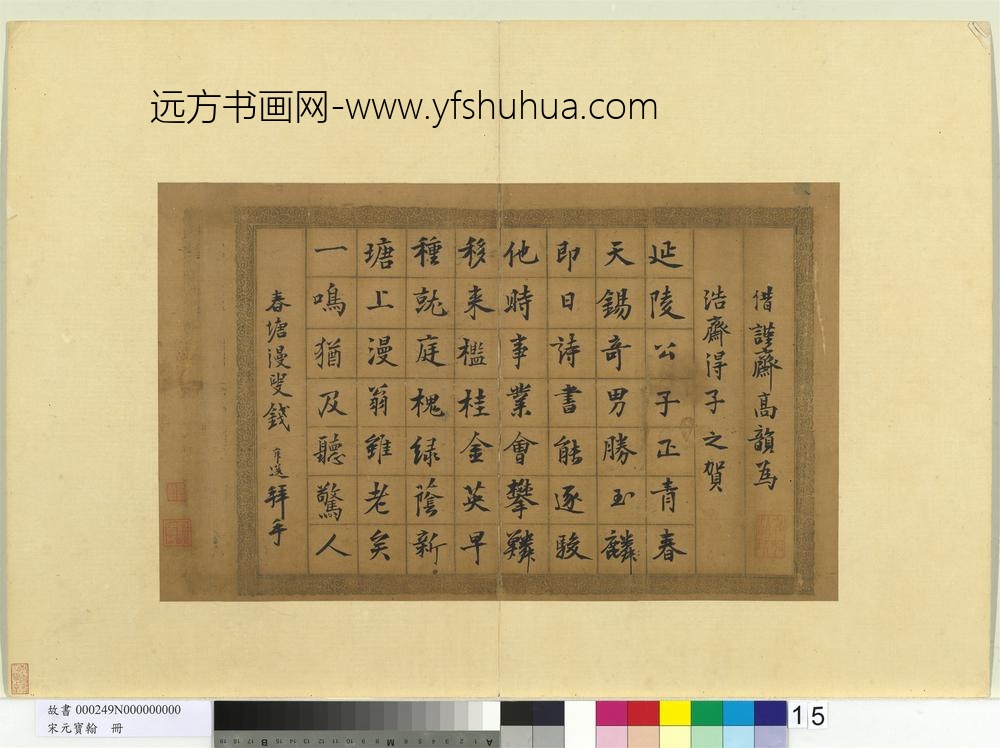 远方书画网-www.yfshuhua.com
借謹齋高韻為
浩齋得子之賀
延陵公子正青春
天錫奇男勝玉麟
即日詩書能逐駿
他時事業會攀鱗
移来檻桂金英早
種就庭槐緑蔭新
瑭上漫翁雖老矣
一鳴猶及聽驚人
春塘漫叟錢選拜手
故書 000249N000000000
宋元寶翰 冊
15